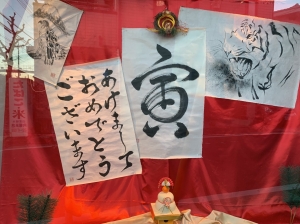 寅
あけまして
おめでとう
ございます